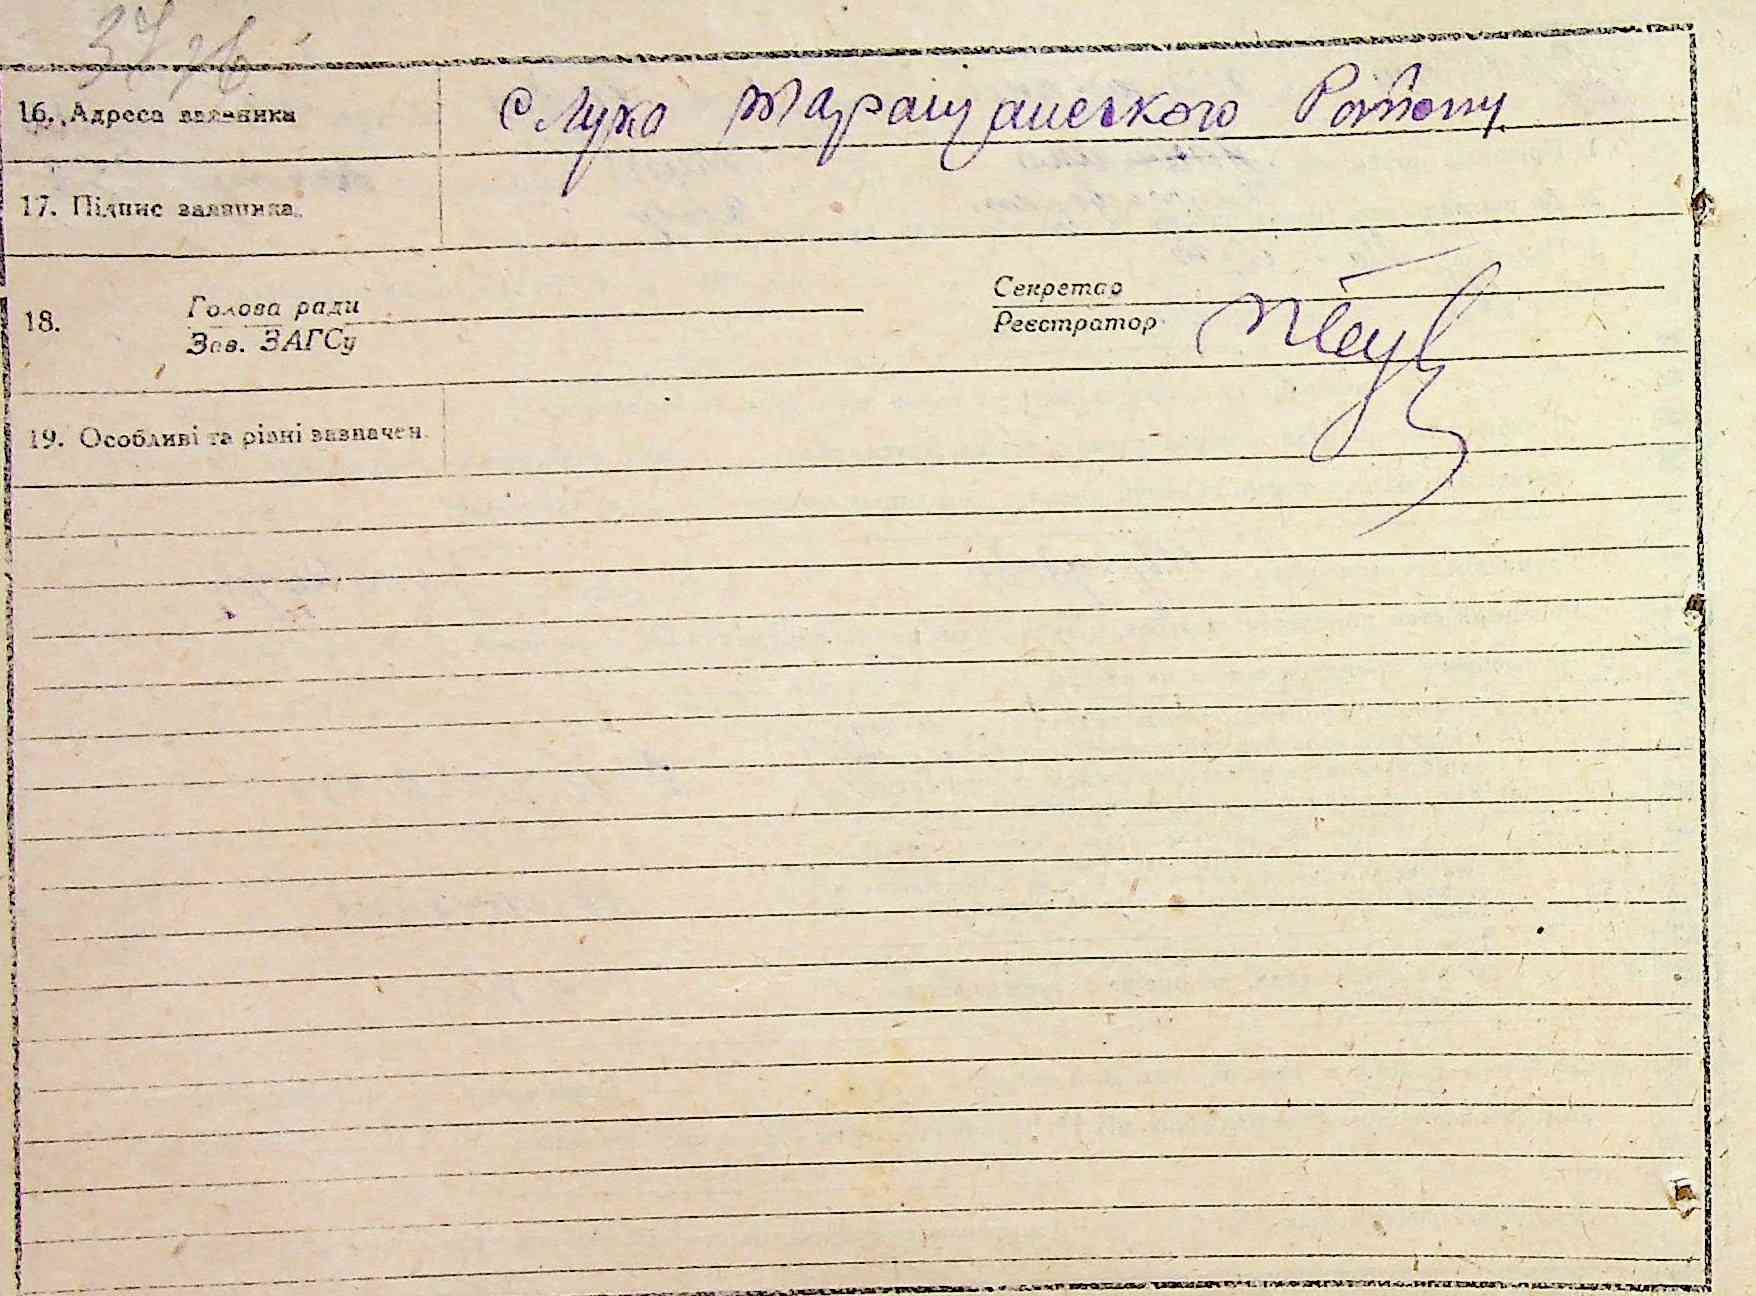 37
16. Адреса заявника с Лука Таращанського Району
17. Підпис заявника
18. Голова ради
Зав. ЗАГСу
Секретар
Реєстратор
19. Особливі та різні зазначен.